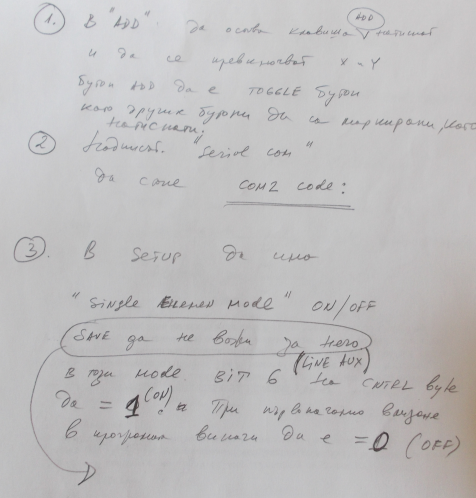 1. В "ADD" да остава клавиша ADD натиснат
и да се превключват X - Y
бутон ADD да е TOGGLE бутон
като другите бутони да са маркирани, като
натиснати.
2 Надписът "Serial com"
да стане COM2 code:
3. В Setup да има
"Single mode" ON/OFF
SAVE да не важи за него
В този mode BIT 6 (LINE AUX) на CNTRL byte
да = 1 (ON). При първоначално влизане
в програмата винаги да е = 0 (OFF)